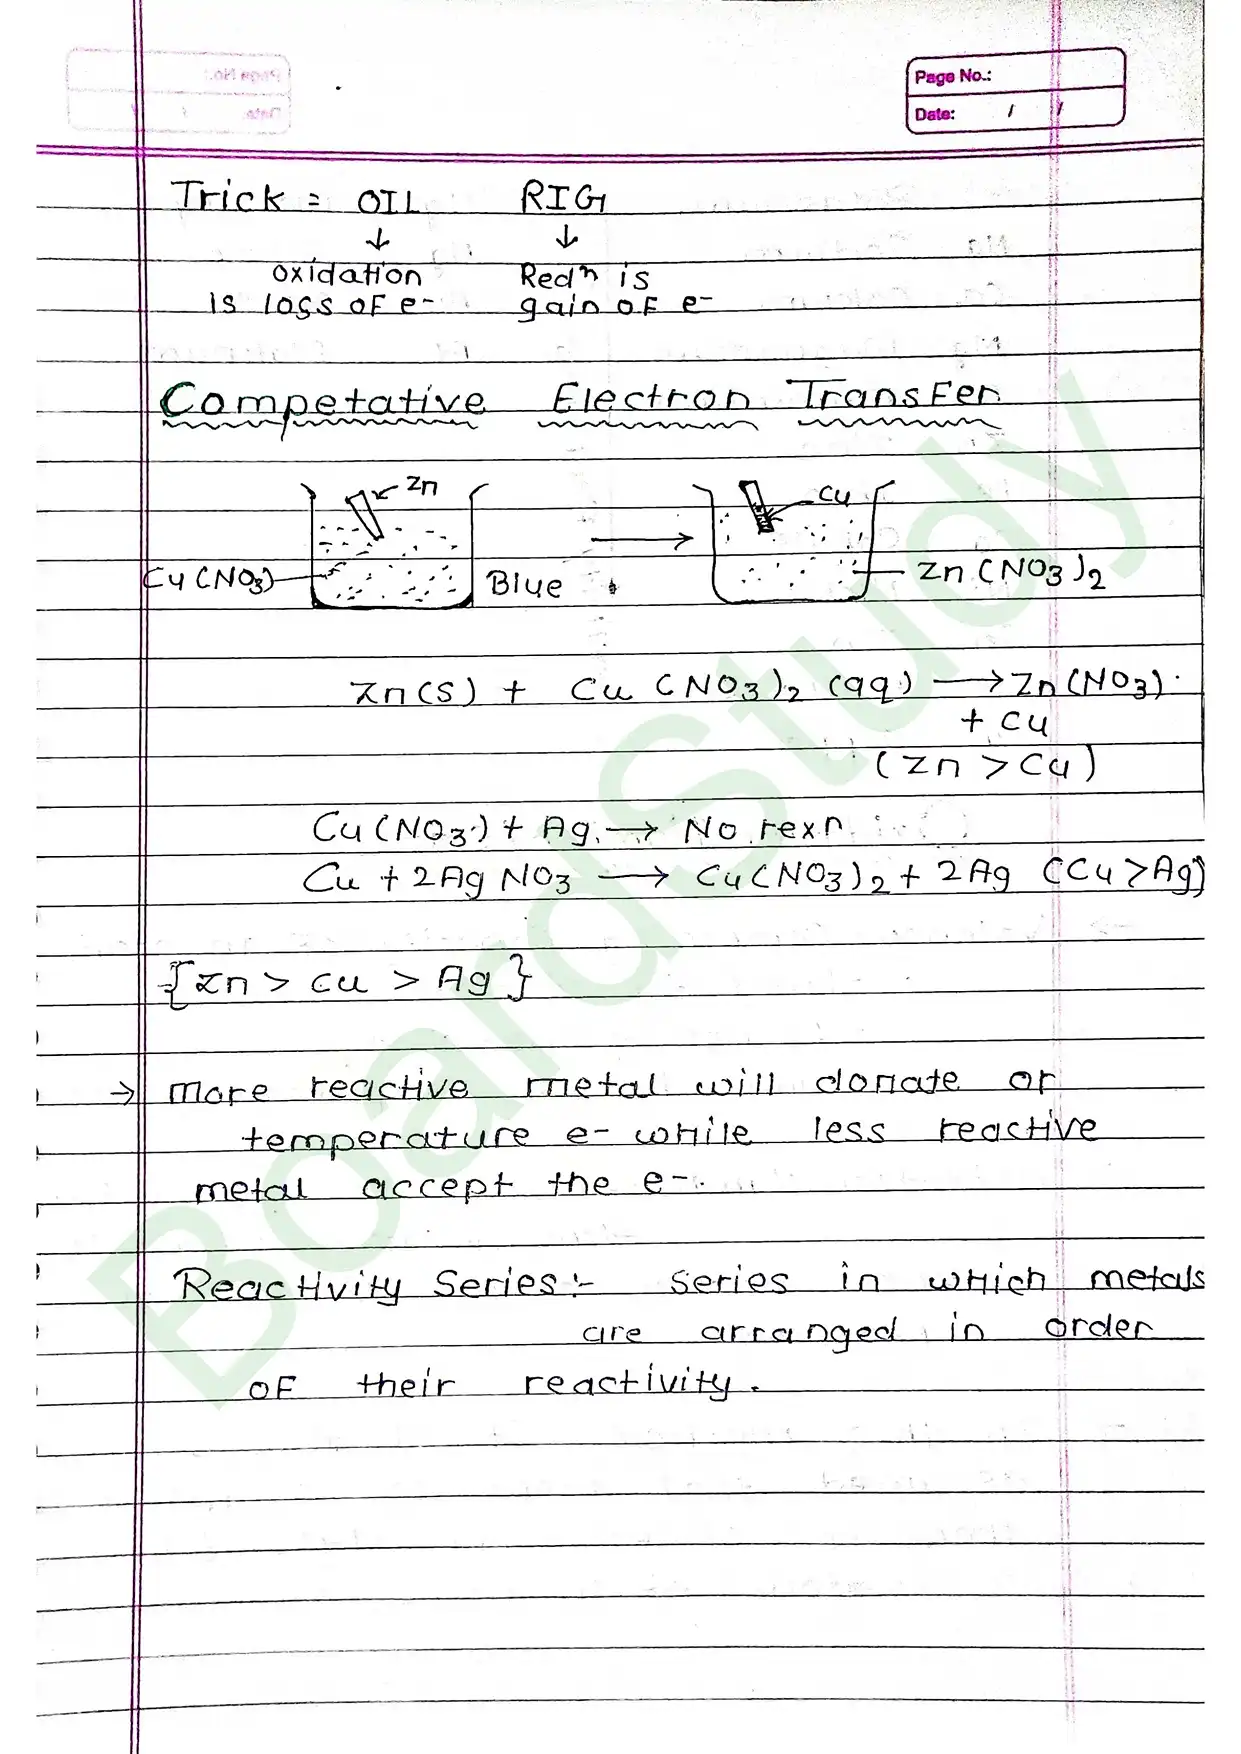 Page No.:
Date: / /
Trick = OIL RIG
↓ ↓
oxidation Redⁿ is
is loss of e- gain of e-
Competative Electron Transfer
Zn
Cu
Cu(NO3)
Blue
→
Zn(NO3)2
Zn(s) + Cu(NO3)2 (aq) → Zn(NO3)
+ Cu
(Zn > Cu)
Cu(NO3) + Ag → No rexn
Cu + 2AgNO3 → Cu(NO3)2 + 2Ag (Cu > Ag)
{Zn > Cu > Ag}
→ More reactive metal will donate or
temperature e- while less reactive
metal accept the e-.
Reactivity Series:- Series in which metals
are arranged in order
of their reactivity.
BoardStudy